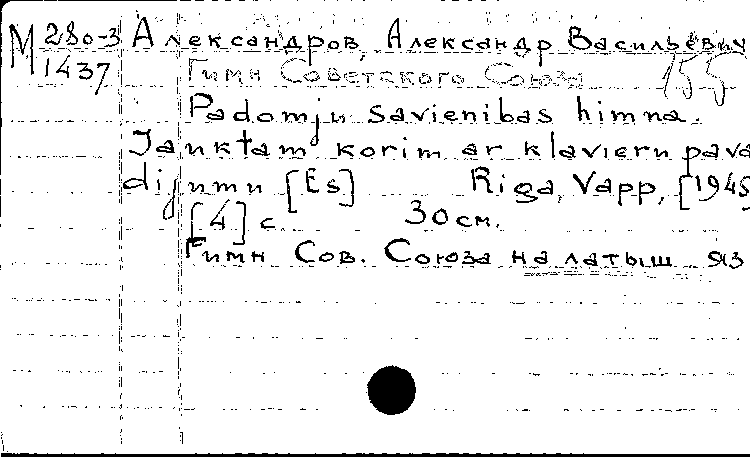 М 280-3 Александров, Александр Васильевич
1437 Гимн Советского Союза 155
Padomju savienibas himna.
Jauktam korim ar klavieru pava
dijumu [Es] Riga, Vapp, [1945]
[4] с. 30 см.
Гимн Сов. Союза на латыш. яз